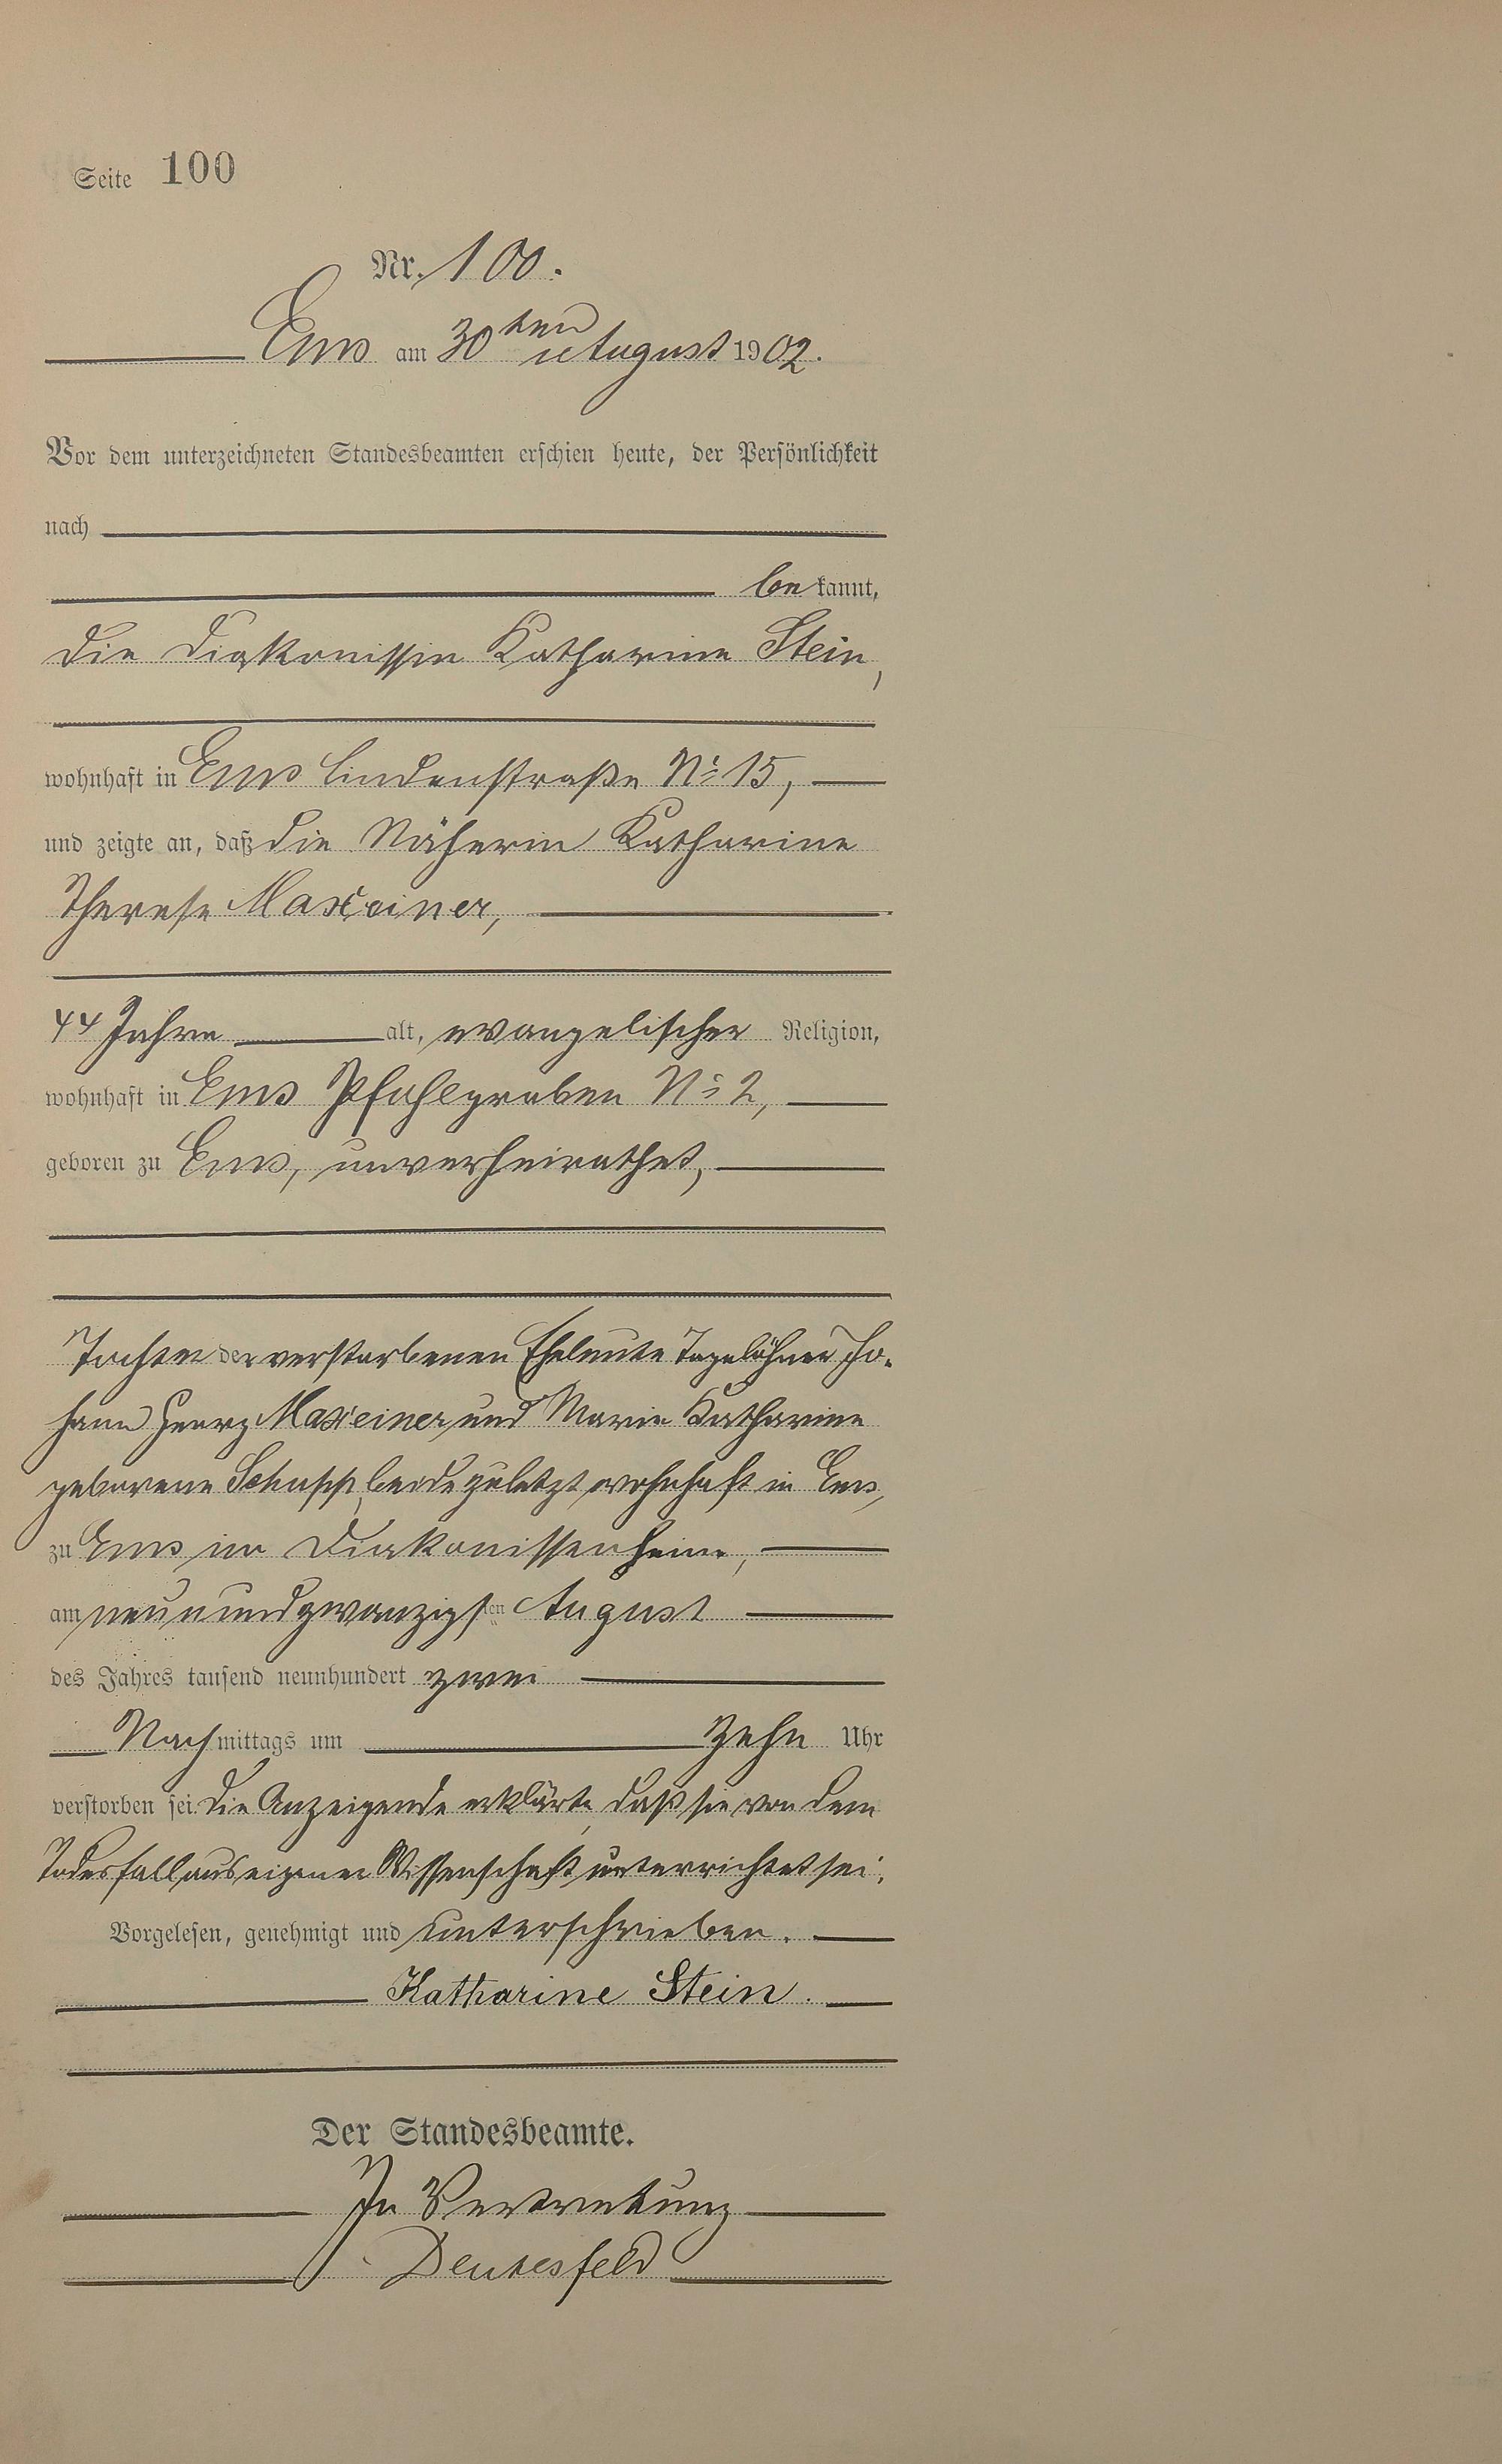 Seite 100
Nr. 100.
Ems am 30ten August 1902.
Vor dem unterzeichneten Standesbeamten erschien heute, der Persönlichkeit
nach
bekannt,
die Diakonissin Katharine Stein,
wohnhaft in Ems Lindenstraße No 15,
und zeigte an, daß die Näherin Katharine
Therese Maxeiner,
44 Jahre alt, evangelischer Religion,
wohnhaft in Ems Pfahlgraben No 2,
geboren zu Ems, unverheirathet,
Tochter der verstorbenen Eheleute Tagelöhner Jo-
hann Georg Maxeiner und Marie Katharine
geborene Schupp, beide zuletzt wohnhaft in Ems,
zu Ems im Diakonissenheim,
am neunundzwanzigsten August
des Jahres tausend neunhundert zwei
Nachmittags um zehn Uhr
verstorben sei. Die Anzeigende erklärte, daß sie von dem
Todesfall aus eigener Wissenschaft unterrichtet sei.
Vorgelesen, genehmigt und unterschrieben.
Katharine Stein.
Der Standesbeamte.
In Vertretung
Deutesfeld